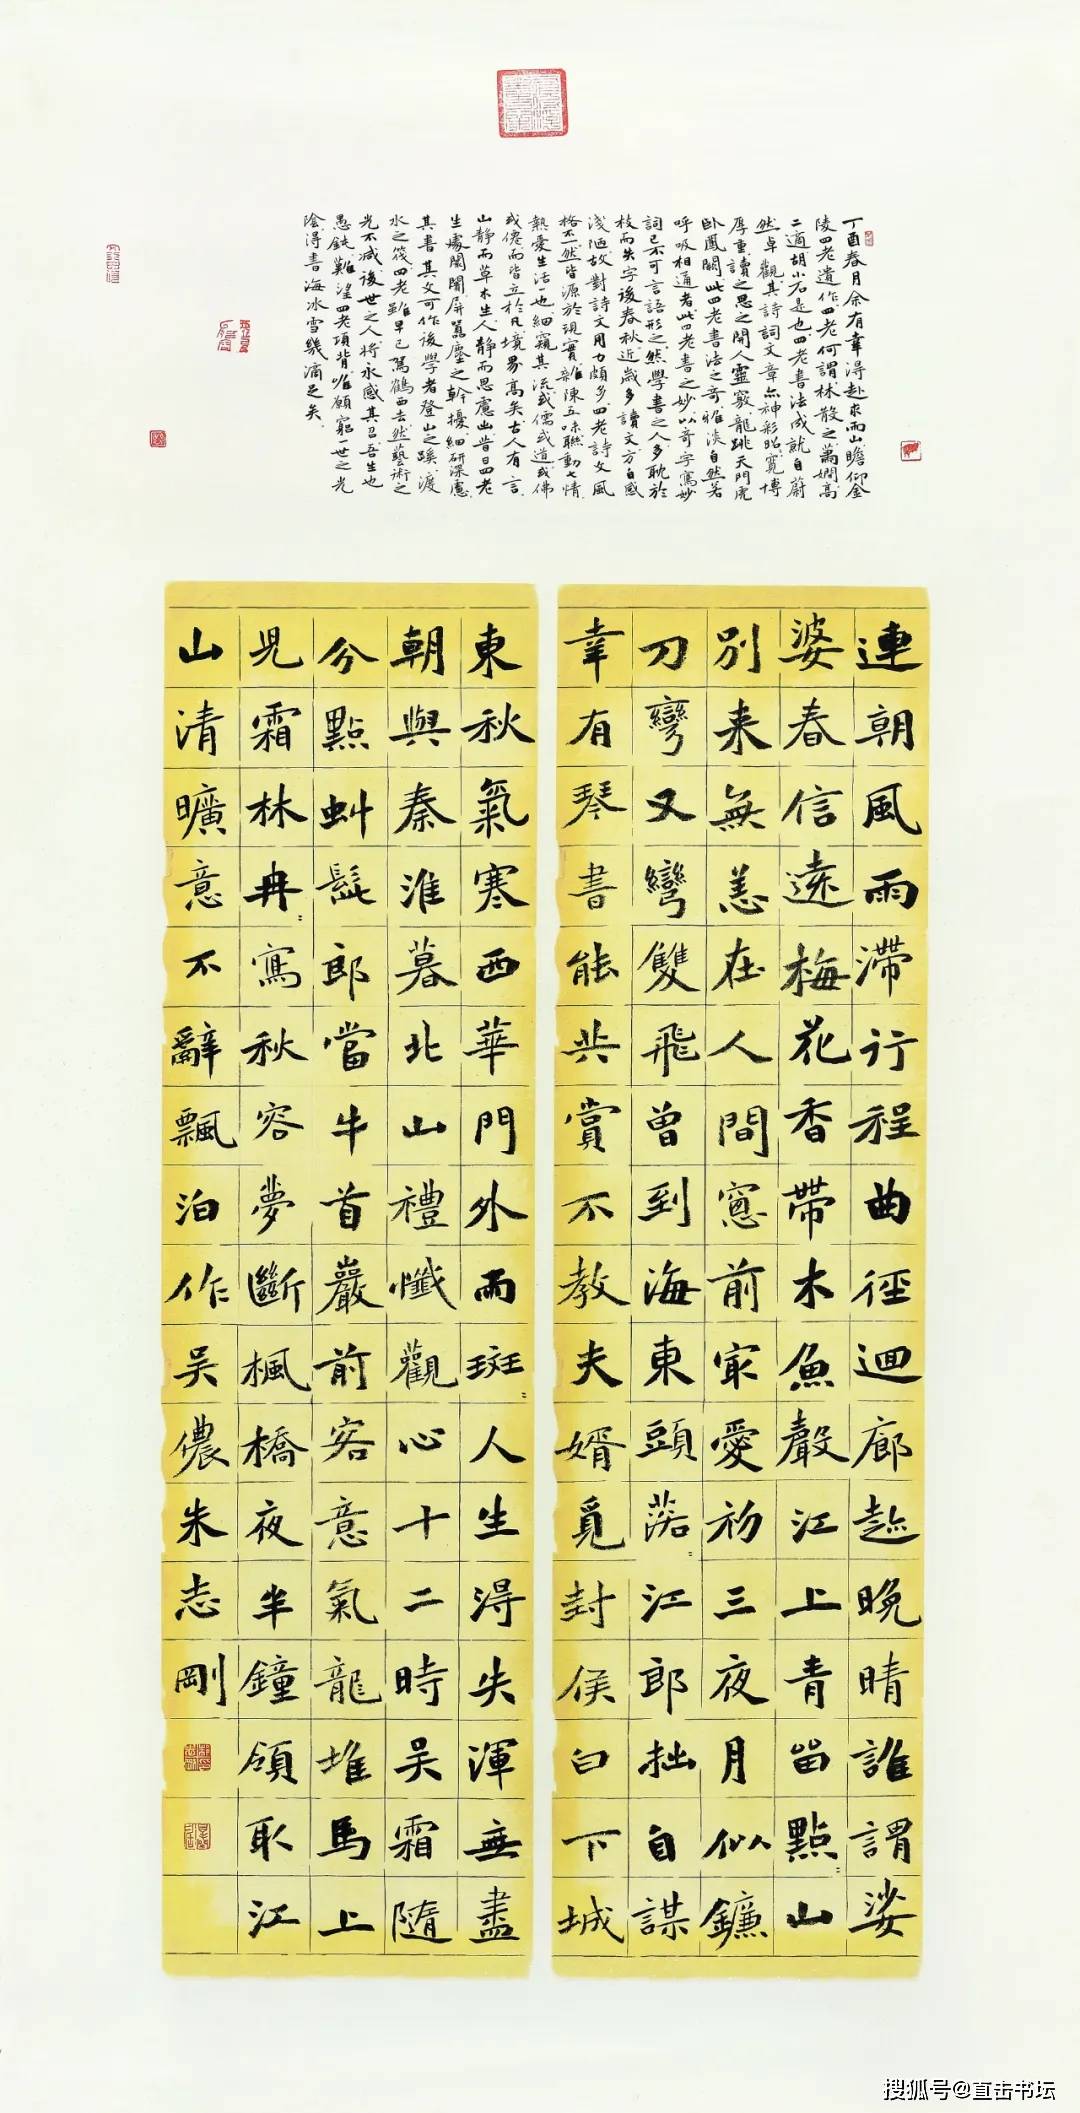 丁酉春月余有幸得赴求雨山瞻仰金
陵四老遺作四老何謂林散之蕭嫻高
二適胡小石是也四老書法成就自蔚
然卓觀其詩詞文章亦神彩昭寬博
厚重讀之思之開人靈竅龍跳天門虎
卧鳳闕此四老書法之奇雅淡自然若
呼吸相通者此四老書之妙以奇字寫妙
詞已不可言語形之然學書之人多耽於
枝而失字後春秋近歲多讀文方自感
淺陋故對詩文用力頗多四老詩文風
格不一然皆源於現實雜陳五味聯動七情
熱愛生活一也細窺其流或儒或道或佛
或僊而皆立於凡境界高矣古人有言
山靜而草木生人靜而思慮出昔日四老
生處闤闠屏囂塵之幹擾細研深慮
其書其文可作後學者登山之蹊渡
水之筏四老雖早已駕鶴西去然藝術之
光不減後世之人將永感其召吾生也
愚鈍難望四老項背唯願窮一世之光
陰得書海冰雪幾滴足矣
連朝風雨滯行程曲徑迴廊趁晚晴誰謂娑
婆春信遠梅花香帶木魚聲江上青畄點〻山
別来無恙在人間窻前冣愛初三夜月似鐮
刀彎又彎雙飛曾到海東頭落〻江郎拙自謀
幸有琴書能共賞不教夫婿覓封侯白下城
東秋氣寒西華門外雨斑〻人生得失渾無盡
朝與秦淮暮北山禮懺觀心十二時吳霜隨
分點虯髭郎當牛首巖前客意氣龍堆馬上
兒霜林冉〻寫秋容夢斷楓橋夜半鐘領取江
山清曠意不辭飄泊作吳儂朱志剛
搜狐号@直击书坛